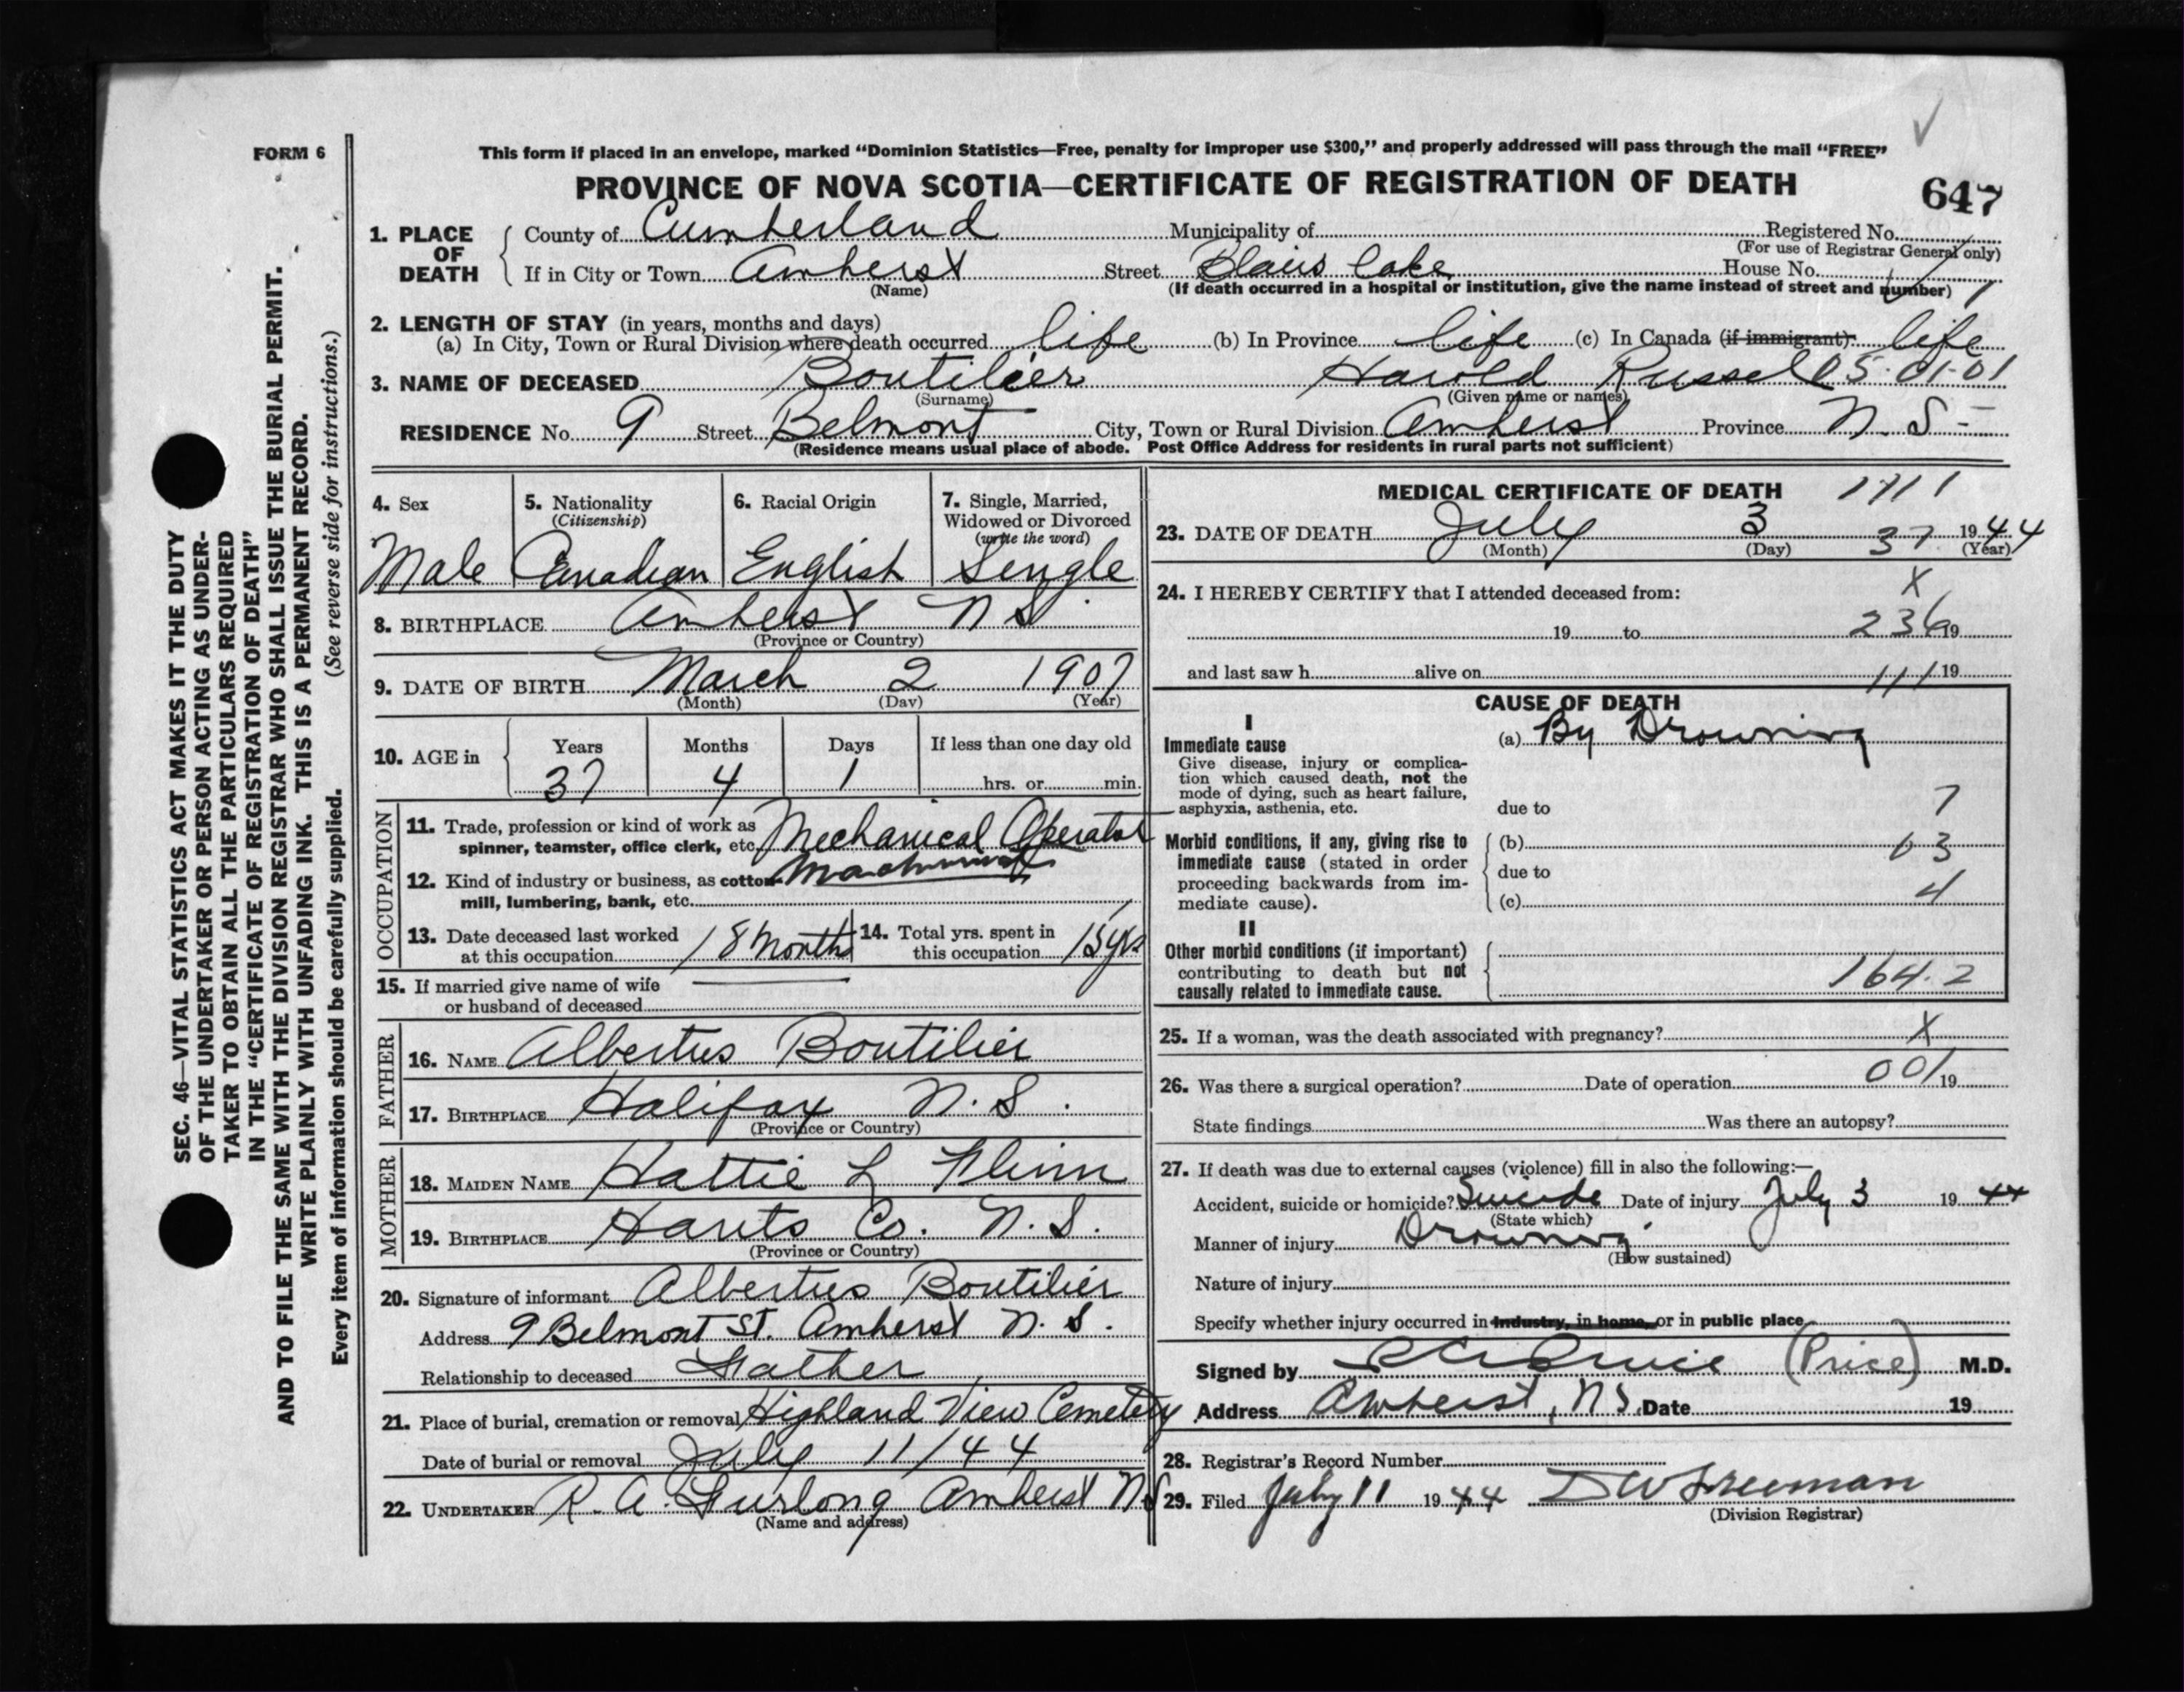 FORM 6
This form if placed in an envelope, marked “Dominion Statistics—Free, penalty for improper use $300,” and properly addressed will pass through the mail “FREE”
PROVINCE OF NOVA SCOTIA—CERTIFICATE OF REGISTRATION OF DEATH
647
1. PLACE OF DEATH
County of Cumberland Municipality of Registered No.
(For use of Registrar General only)
If in City or Town Amherst Street Blairs Lake House No.
(Name) (If death occurred in a hospital or institution, give the name instead of street and number)
2. LENGTH OF STAY (in years, months and days)
(a) In City, Town or Rural Division where death occurred life (b) In Province life (c) In Canada (if immigrant) life
3. NAME OF DECEASED Boutilier Harold Russel 05-01-01
(Surname) (Given name or names)
RESIDENCE No. 9 Street Belmont City, Town or Rural Division Amherst Province N. S.
(Residence means usual place of abode. Post Office Address for residents in rural parts not sufficient)
4. Sex
Male
5. Nationality
(Citizenship)
Canadian
6. Racial Origin
English
7. Single, Married,
Widowed or Divorced
(write the word)
Single
8. BIRTHPLACE Amherst N S
(Province or Country)
9. DATE OF BIRTH March 2 1907
(Month) (Day) (Year)
10. AGE in
Years Months Days If less than one day old
37 4 1 hrs. or min.
OCCUPATION
11. Trade, profession or kind of work as
spinner, teamster, office clerk, etc. Mechanical Operator
12. Kind of industry or business, as cotton
mill, lumbering, bank, etc.
13. Date deceased last worked
at this occupation 18 Months
14. Total yrs. spent in
this occupation 15 yrs
15. If married give name of wife
or husband of deceased
FATHER
16. NAME Albertus Boutilier
17. BIRTHPLACE Halifax N. S.
(Province or Country)
MOTHER
18. MAIDEN NAME Hattie L Flinn
19. BIRTHPLACE Hants Co. N. S.
(Province or Country)
20. Signature of informant Albertus Boutilier
Address 9 Belmont St. Amherst N. S.
Relationship to deceased Father
21. Place of burial, cremation or removal Highland View Cemetery
Date of burial or removal July 11/44
22. UNDERTAKER R. A. Furlong Amherst NS
(Name and address)
MEDICAL CERTIFICATE OF DEATH
23. DATE OF DEATH July 3 37 1944
(Month) (Day) (Year)
24. I HEREBY CERTIFY that I attended deceased from:
X
19 to 236 19
and last saw h alive on 111 19
CAUSE OF DEATH
I
Immediate cause
Give disease, injury or complica-
tion which caused death, not the
mode of dying, such as heart failure,
asphyxia, asthenia, etc.
(a) By Drowning
due to 7
Morbid conditions, if any, giving rise to
immediate cause (stated in order
proceeding backwards from im-
mediate cause).
(b) 63
due to
(c) 4
II
Other morbid conditions (if important)
contributing to death but not
causally related to immediate cause.
164.2
25. If a woman, was the death associated with pregnancy? X
26. Was there a surgical operation? Date of operation 001 19
State findings Was there an autopsy?
27. If death was due to external causes (violence) fill in also the following:—
Accident, suicide or homicide? Suicide Date of injury July 3 1944
(State which)
Manner of injury Drowning
(How sustained)
Nature of injury
Specify whether injury occurred in industry, in home, or in public place
Signed by (Price) M.D.
Address Amherst, NS Date 19
28. Registrar's Record Number
29. Filed July 11 1944 D W Freeman
(Division Registrar)
SEC. 46—VITAL STATISTICS ACT MAKES IT THE DUTY
OF THE UNDERTAKER OR PERSON ACTING AS UNDER-
TAKER TO OBTAIN ALL THE PARTICULARS REQUIRED
IN THE “CERTIFICATE OF REGISTRATION OF DEATH”
AND TO FILE THE SAME WITH THE DIVISION REGISTRAR WHO SHALL ISSUE THE BURIAL PERMIT.
WRITE PLAINLY WITH UNFADING INK. THIS IS A PERMANENT RECORD.
Every item of information should be carefully supplied. (See reverse side for instructions.)